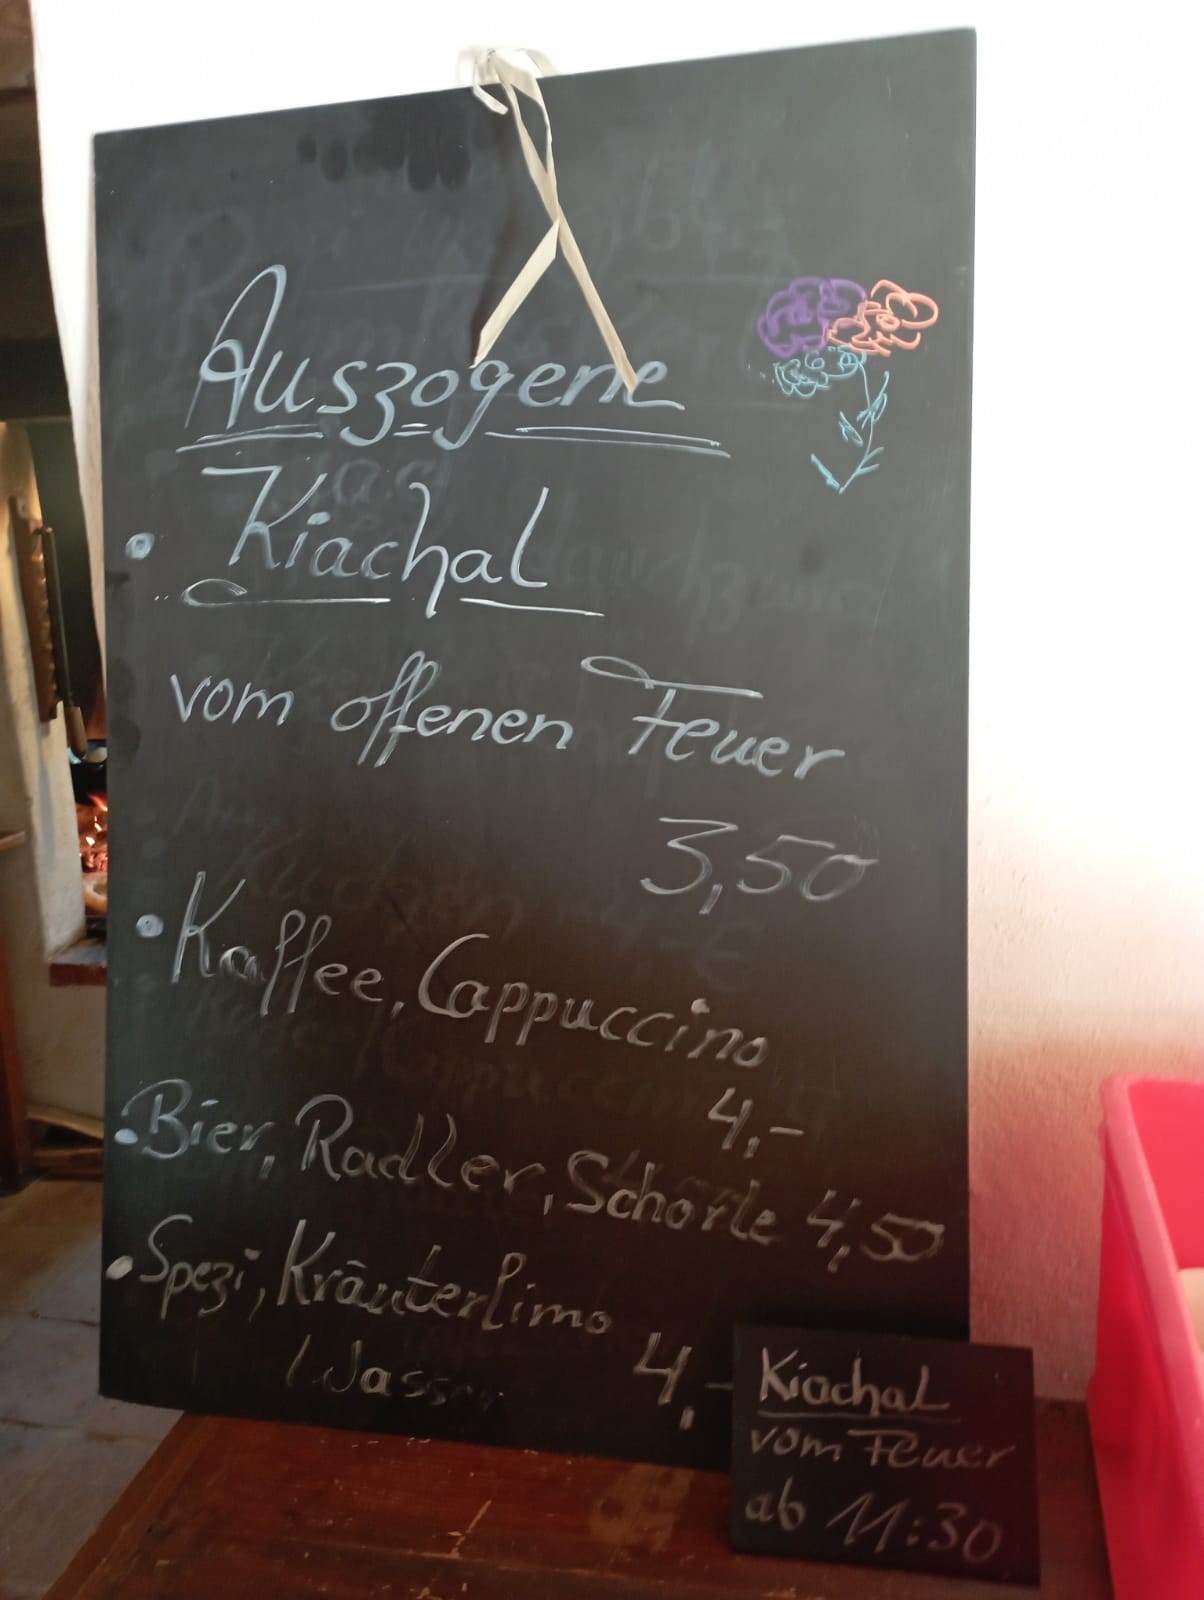 Auszogene
• Kiachal
vom offenen Feuer
3,50
• Kaffee, Cappuccino
4,-
• Bier, Radler, Schorle 4,50
• Spezi, Kräuterlimo
Wasser 4,-
Kiachal
vom Feuer
ab 11:30